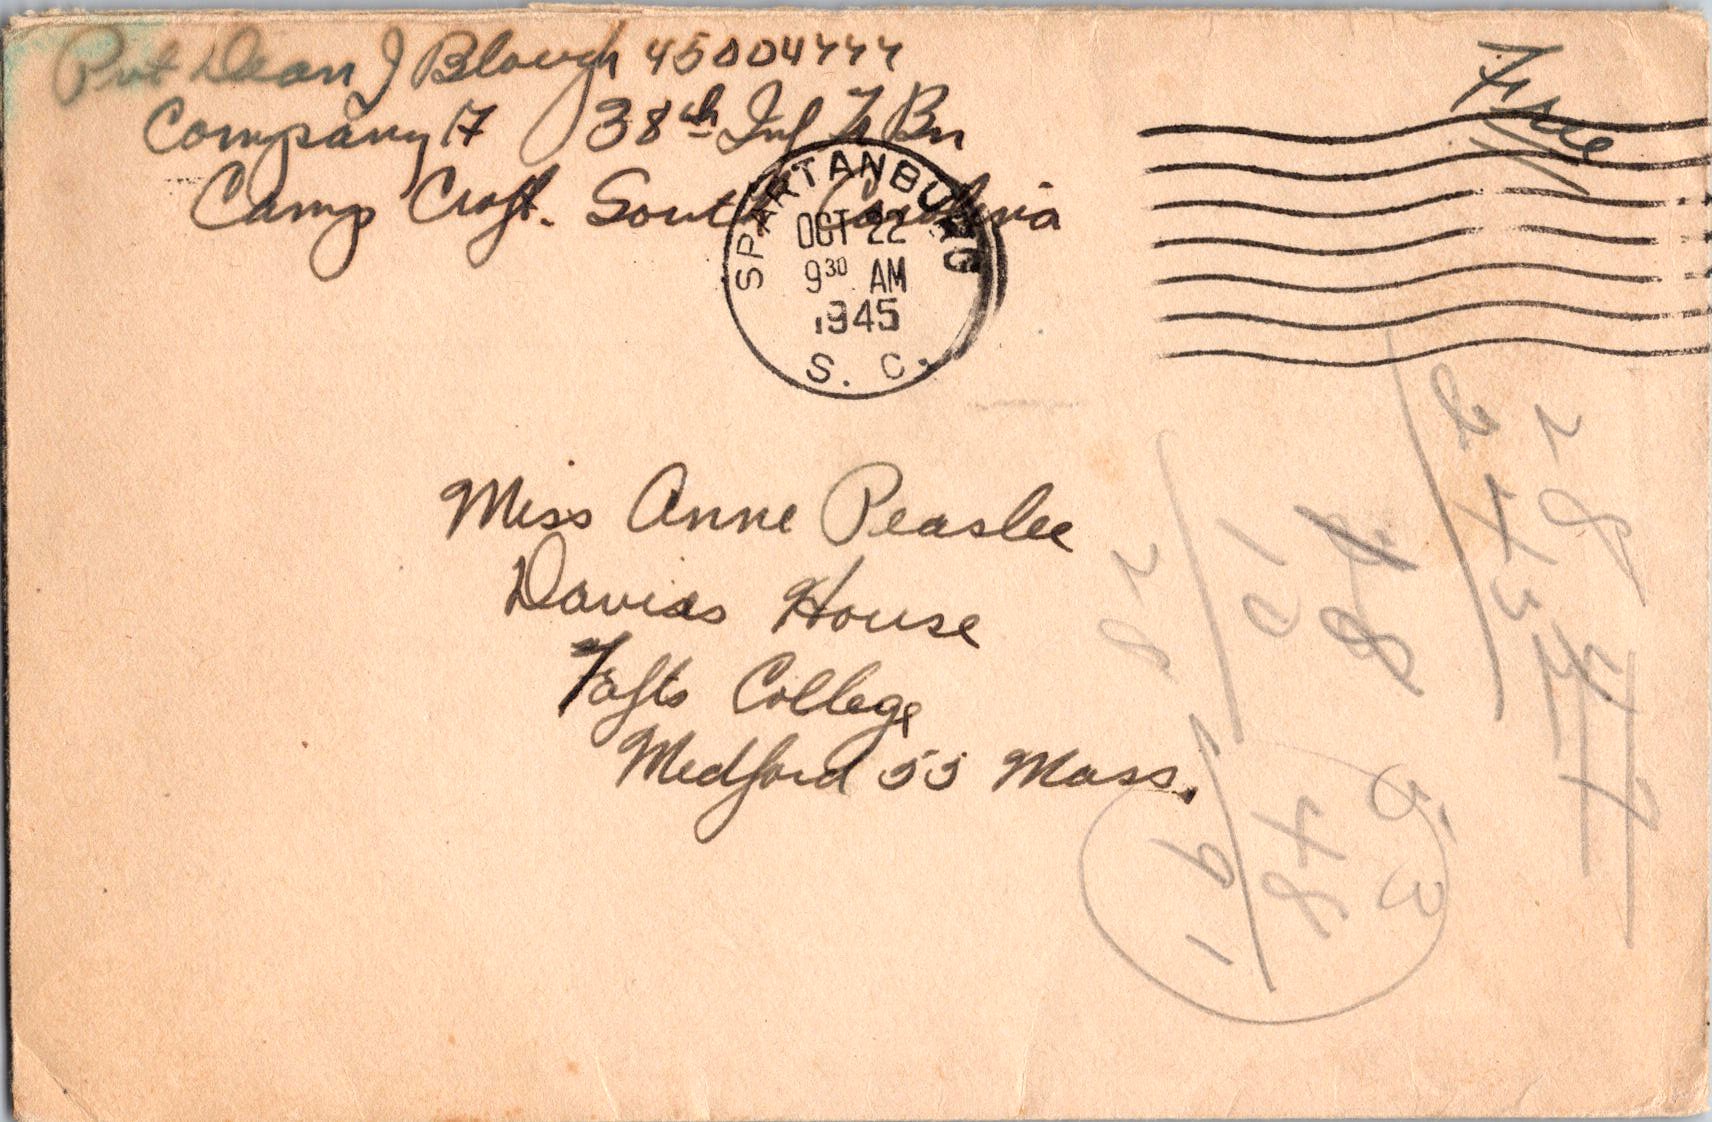 Pvt Dean J Blough 45004777
Company 17 38th Inf Tr Bn
Camp Croft. South Carolina
Free
SPARTANBURG
OCT 22
930 AM
1945
S. C.
Miss Anne Peaslee
Davies House
Tufts College
Medford 55 Mass.